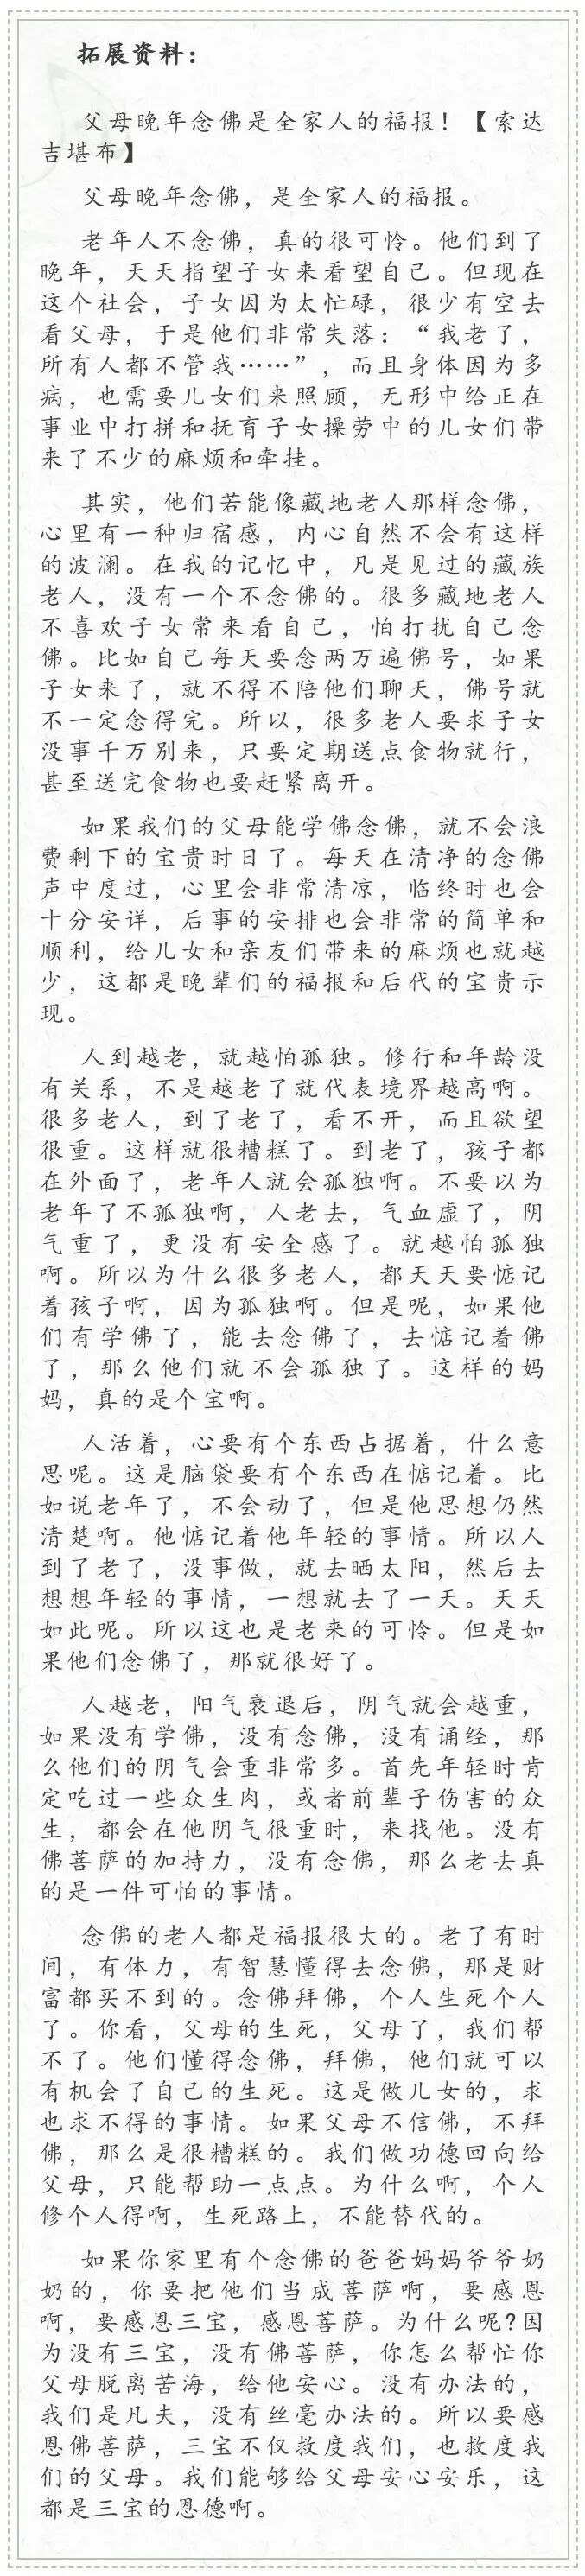 拓展资料：
父母晚年念佛是全家人的福报！【索达
吉堪布】
父母晚年念佛，是全家人的福报。
老年人不念佛，真的很可怜。他们到了
晚年，天天指望子女来看望自己。但现在
这个社会，子女因为太忙碌，很少有空去
看父母，于是他们非常失落：“我老了，
所有人都不管我……”，而且身体因为多
病，也需要儿女们来照顾，无形中给正在
事业中打拼和抚育子女操劳中的儿女们带
来了不少的麻烦和牵挂。
其实，他们若能像藏地老人那样念佛，
心里有一种归宿感，内心自然不会有这样
的波澜。在我的记忆中，凡是见过的藏族
老人，没有一个不念佛的。很多藏地老人
不喜欢子女常来看自己，怕打扰自己念
佛。比如自己每天要念两万遍佛号，如果
子女来了，就不得不陪他们聊天，佛号就
不一定念得完。所以，很多老人要求子女
没事千万别来，只要定期送点食物就行，
甚至送完食物也要赶紧离开。
如果我们的父母能学佛念佛，就不会浪
费剩下的宝贵时日了。每天在清净的念佛
声中度过，心里会非常清凉，临终时也会
十分安详，后事的安排也会非常的简单和
顺利，给儿女和亲友们带来的麻烦也就越
少，这都是晚辈们的福报和后代的宝贵示
现。
人到越老，就越怕孤独。修行和年龄没
有关系，不是越老了就代表境界越高啊。
很多老人，到了老了，看不开，而且欲望
很重。这样就很糟糕了。到老了，孩子都
在外面了，老年人就会孤独啊。不要以为
老年了不孤独啊，人老去，气血虚了，阴
气重了，更没有安全感了。就越怕孤独
啊。所以为什么很多老人，都天天要惦记
着孩子啊，因为孤独啊。但是呢，如果他
们有学佛了，能去念佛了，去惦记着佛
了，那么他们就不会孤独了。这样的妈
妈，真的是个宝啊。
人活着，心要有个东西占据着，什么意
思呢。这是脑袋要有个东西在惦记着。比
如说老年了，不会动了，但是他思想仍然
清楚啊。他惦记着他年轻的事情。所以人
到了老了，没事做，就去晒太阳，然后去
想想年轻的事情，一想就去了一天。天天
如此呢。所以这也是老来的可怜。但是如
果他们念佛了，那就很好了。
人越老，阳气衰退后，阴气就会越重，
如果没有学佛，没有念佛，没有诵经，那
么他们的阴气会重非常多。首先年轻时肯
定吃过一些众生肉，或者前辈子伤害的众
生，都会在他阴气很重时，来找他。没有
佛菩萨的加持力，没有念佛，那么老去真
的是一件可怕的事情。
念佛的老人都是福报很大的。老了有时
间，有体力，有智慧懂得去念佛，那是财
富都买不到的。念佛拜佛，个人生死个人
了。你看，父母的生死，父母了，我们帮
不了。他们懂得念佛，拜佛，他们就可以
有机会了自己的生死。这是做儿女的，求
也求不得的事情。如果父母不信佛，不拜
佛，那么是很糟糕的。我们做功德回向给
父母，只能帮助一点点。为什么啊，个人
修个人得啊，生死路上，不能替代的。
如果你家里有个念佛的爸爸妈妈爷爷奶
奶的，你要把他们当成菩萨啊，要感恩
啊，要感恩三宝，感恩菩萨。为什么呢?因
为没有三宝，没有佛菩萨，你怎么帮忙你
父母脱离苦海，给他安心。没有办法的，
我们是凡夫，没有丝毫办法的。所以要感
恩佛菩萨，三宝不仅救度我们，也救度我
们的父母。我们能够给父母安心安乐，这
都是三宝的恩德啊。